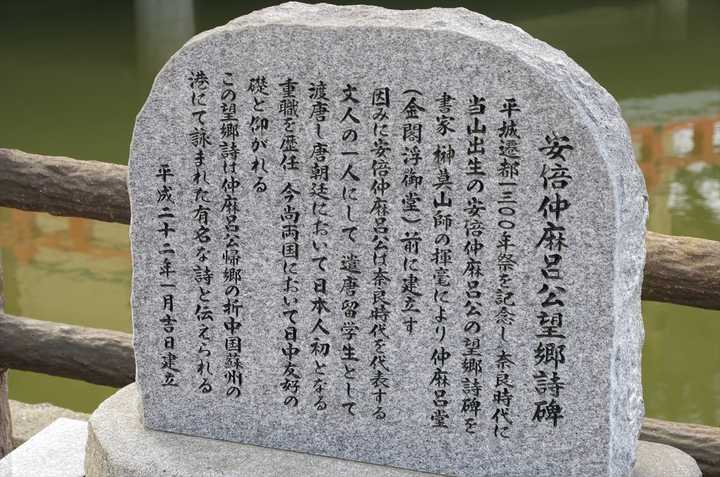 安倍仲麻呂公望郷詩碑
平城遷都一三〇〇年祭を記念し奈良時代に
当山出生の安倍仲麻呂公の望郷詩碑を
書家 榊莫山師の揮毫により 仲麻呂堂
(金閣浮御堂)前に建立す
因みに安倍仲麻呂公は奈良時代を代表する
文人の一人にして 遣唐留学生として
渡唐し唐朝廷において日本人初となる
重職を歴任 今尚両国において日中友好の
礎と仰がれる
この望郷詩は仲麻呂公帰郷の折中国蘇州の
港にて詠まれた有名な詩と伝えられる
平成二十二年一月吉日建立